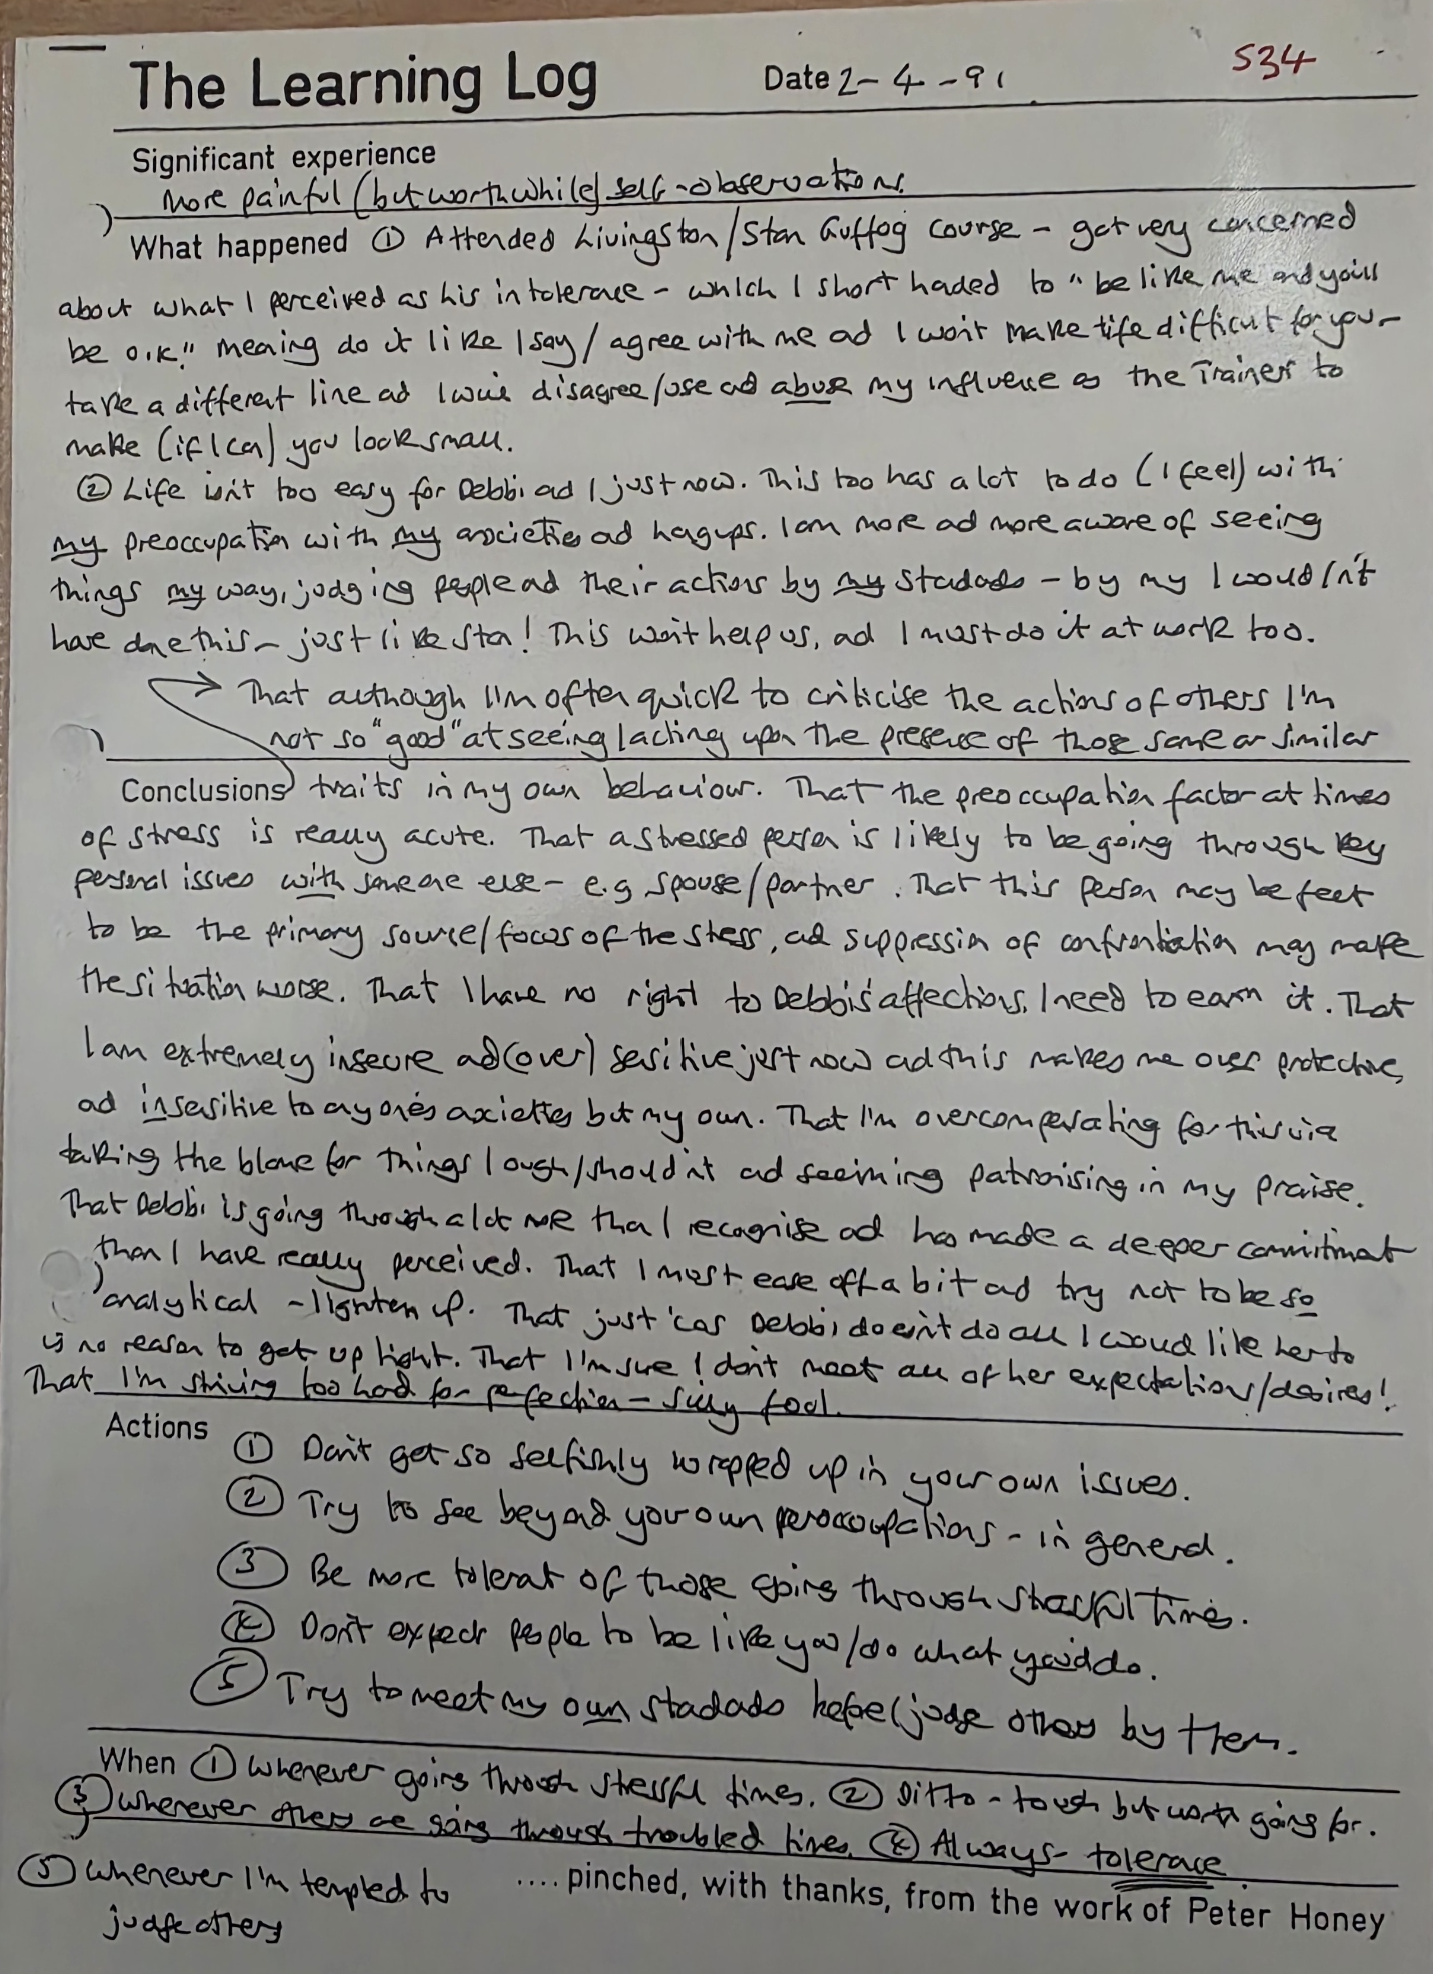 The Learning Log
Date 2-4-91
S34
Significant experience
More painful (but worthwhile) self-observations.
What happened ① Attended Livingston/Stan Guffog course - got very concerned
about what I perceived as his intolerace - which I short haded to "be like me and youll
be O.K." meaning do it like I say/agree with me ad I won't make life difficult for you -
take a different line ad I will disagree/use ad abuse my influence as the Trainer to
make (if I can) you look small.
② Life isn't too easy for Debbi ad I just now. This too has a lot to do (I feel) with
my preoccupation with my axieties ad hagups. I am more ad more aware of seeing
things my way, judging people ad their actions by my stadads - by my I would/n't
have done this - just like Stan! This won't help us, ad I must do it at work too.
That although I'm often quick to criticise the actions of others I'm
not so "good" at seeing/acting upon the presence of those same or similar
Conclusions traits in my own behaviour. That the preoccupation factor at times
of stress is really acute. That a stressed person is likely to be going through key
personal issues with someone else - e.g spouse/partner. That this person may be feet
to be the primary source/focus of the stress, ad suppression of confrontation may make
the situation worse. That I have no right to Debbi's affections, I need to earn it. That
I am extremely insecure ad (over) sesitive just now ad this makes me over protective,
ad insesitive to anyone's axieties but my own. That I'm overcompensating for this via
taking the blame for things I ough/shouldn't ad seeming patronising in my praise.
That Debbi is going through a lot more tha I recognise ad has made a deeper commitmat
than I have really perceived. That I must ease off a bit ad try not to be so
analytical - lighten up. That just 'cos Debbi doesn't do all I would like her to
is no reason to get up tight. That I'm sure I don't meet all of her expectations/desires!
That I'm striving too hard for perfection - silly fool.
Actions ① Don't get so selfishly wrapped up in your own issues.
② Try to see beyond your own peroccupations - in general.
③ Be more tolerat of those going through stressful times.
④ Don't expect people to be like you/do what you'd do.
⑤ Try to meet my own stadads before I judge others by them.
When ① Whenever going through stressful times. ② Ditto - tough but worth going for.
③ Whenever others are going through troubled times. ④ Always - tolerace
⑤ Whenever I'm tempted to
judge others
.... pinched, with thanks, from the work of Peter Honey